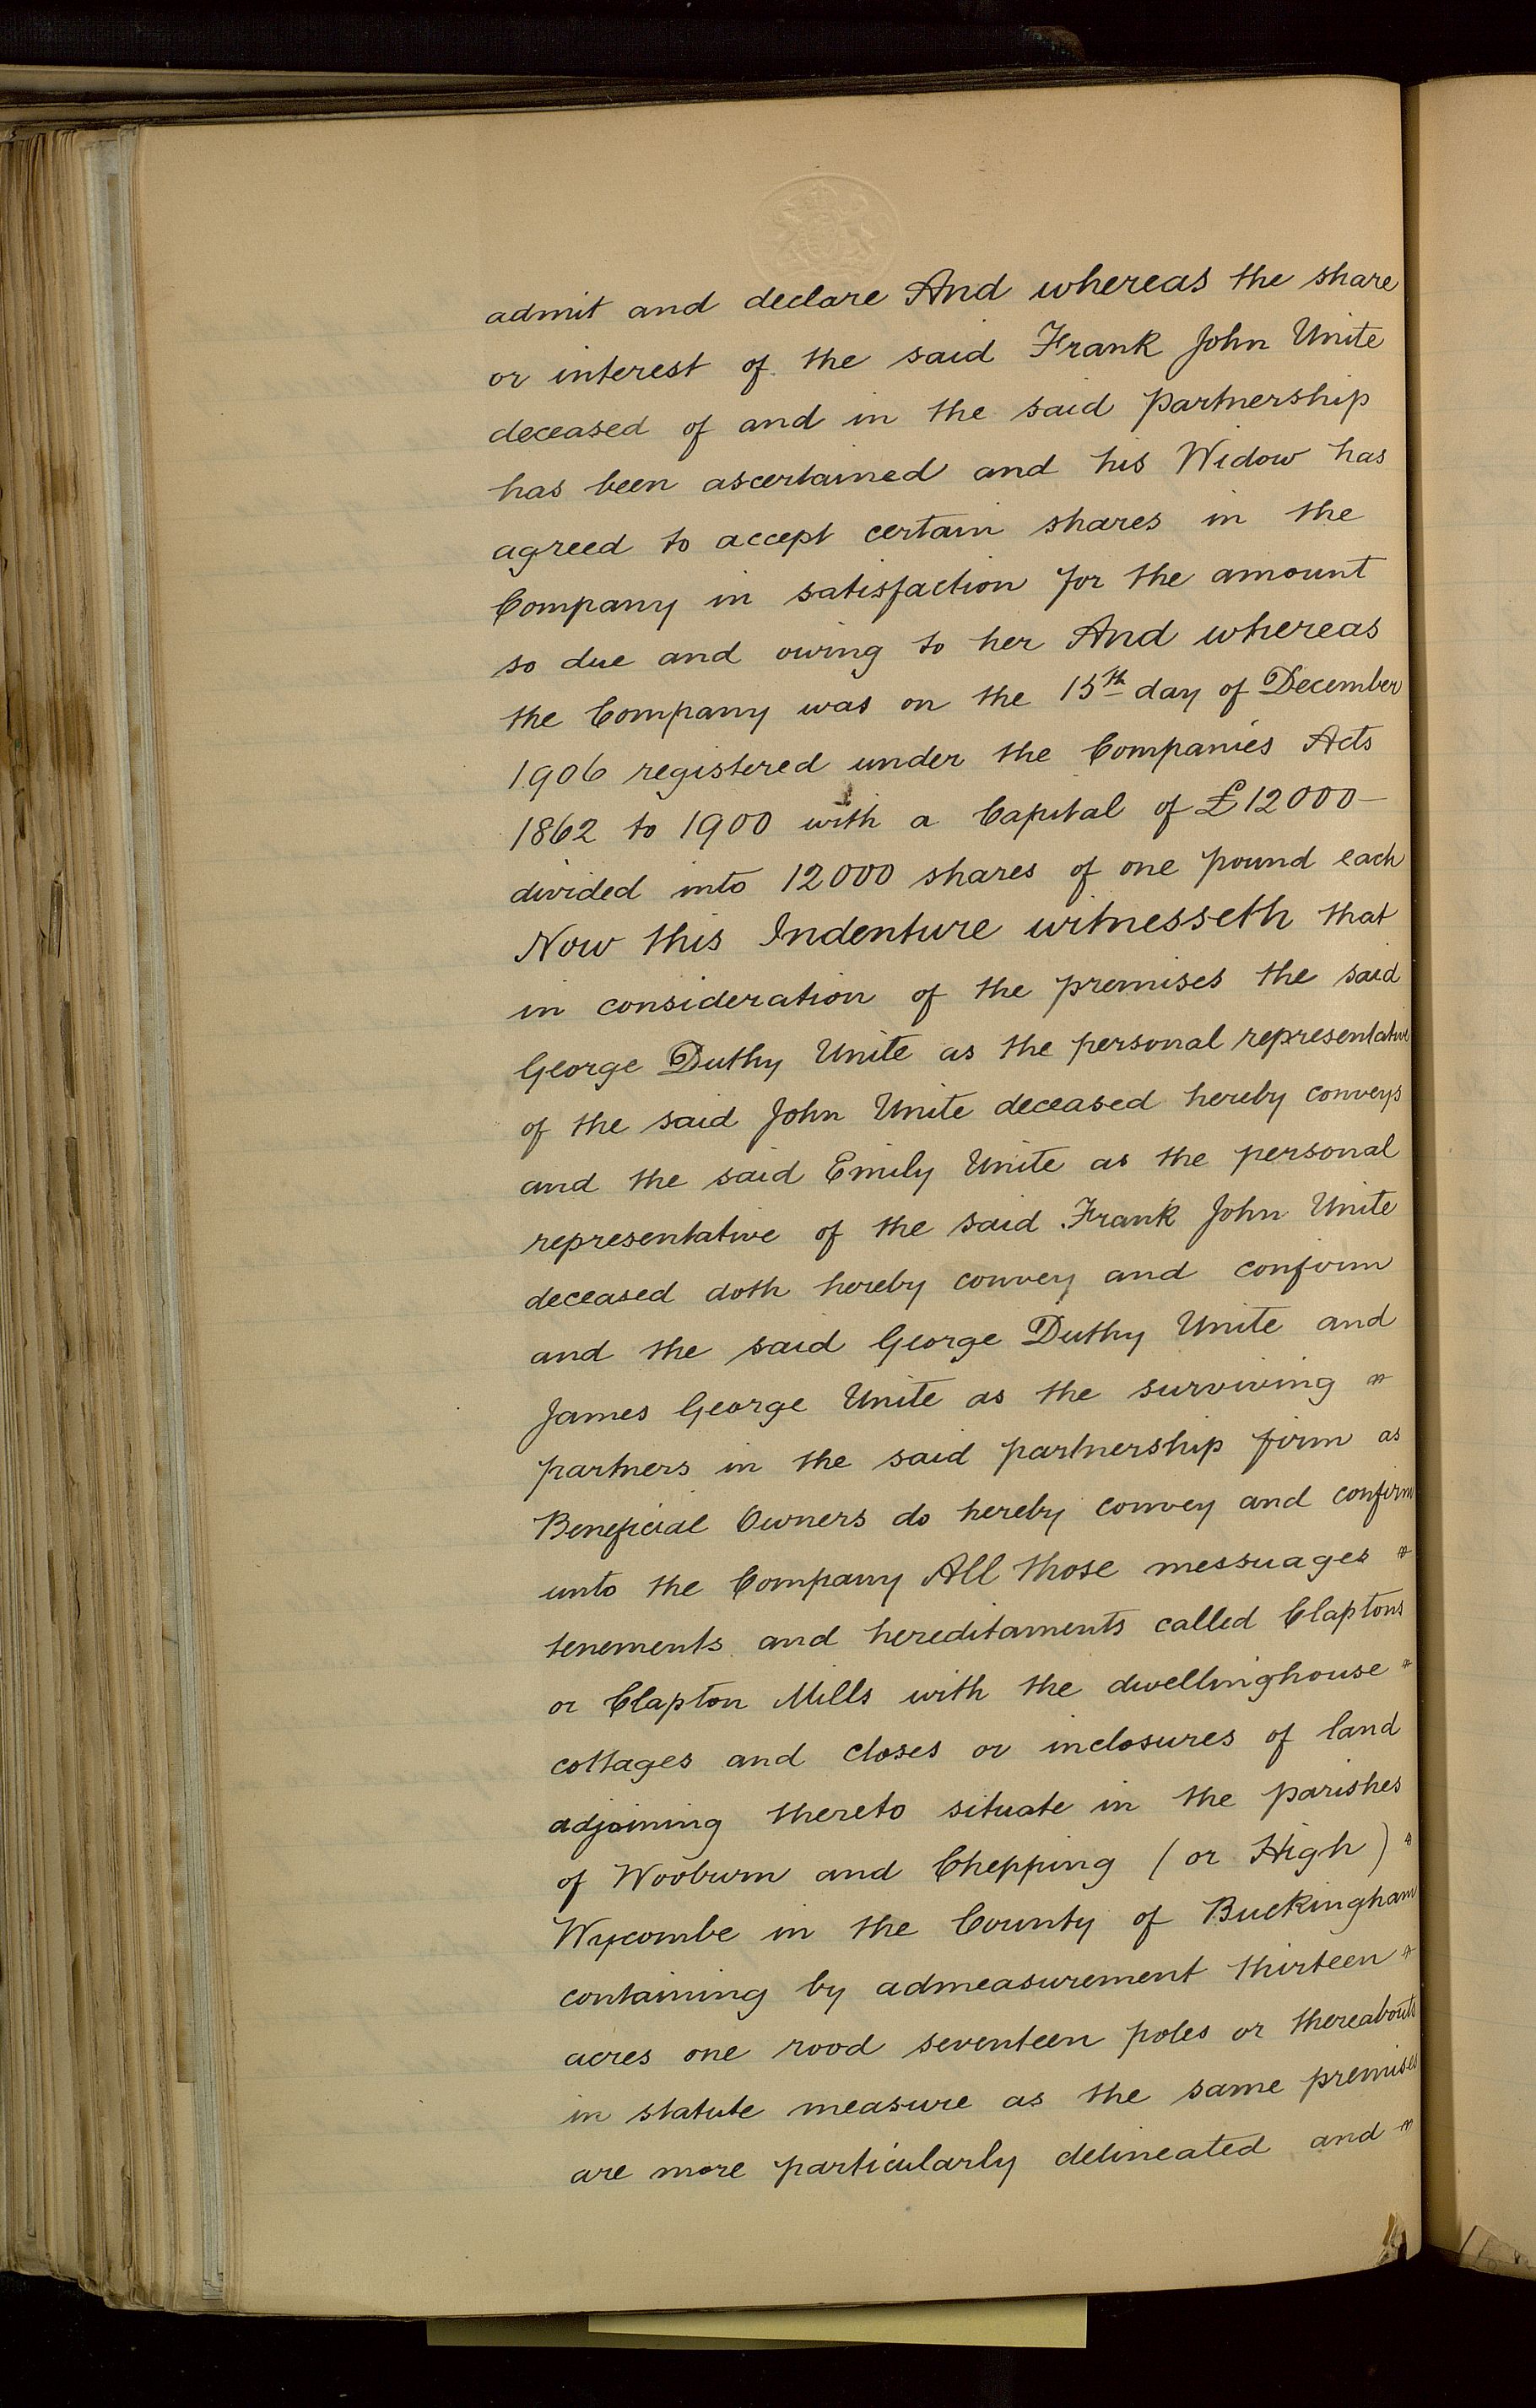 admit and declare And whereas the share
or interest of the said Frank John Unite
deceased of and in the said partnership
has been ascertained and his Widow has
agreed to accept certain shares in the
Company in satisfaction for the amount
so due and owing to her And whereas
the Company was on the 15th day of December
1906 registered under the Companies Acts
1862 to 1900 with a Capital of £12000—
divided into 12000 shares of one pound each
Now this Indenture witnesseth that
in consideration of the premises the said
George Duthy Unite as the personal representative
of the said John Unite deceased hereby conveys
and the said Emily Unite as the personal
representative of the said Frank John Unite
deceased doth hereby convey and confirm
and the said George Duthy Unite and
James George Unite as the surviving
partners in the said partnership firm as
Beneficial Owners do hereby convey and confirm
unto the Company All those messuages
tenements and hereditaments called Claptons
or Clapton Mills with the dwellinghouse
cottages and closes or inclosures of land
adjoining thereto situate in the parishes
of Wooburn and Chepping (or High)
Wycombe in the County of Buckingham
containing by admeasurement thirteen
acres one rood seventeen poles or thereabouts
in statute measure as the same premises
are more particularly delineated and